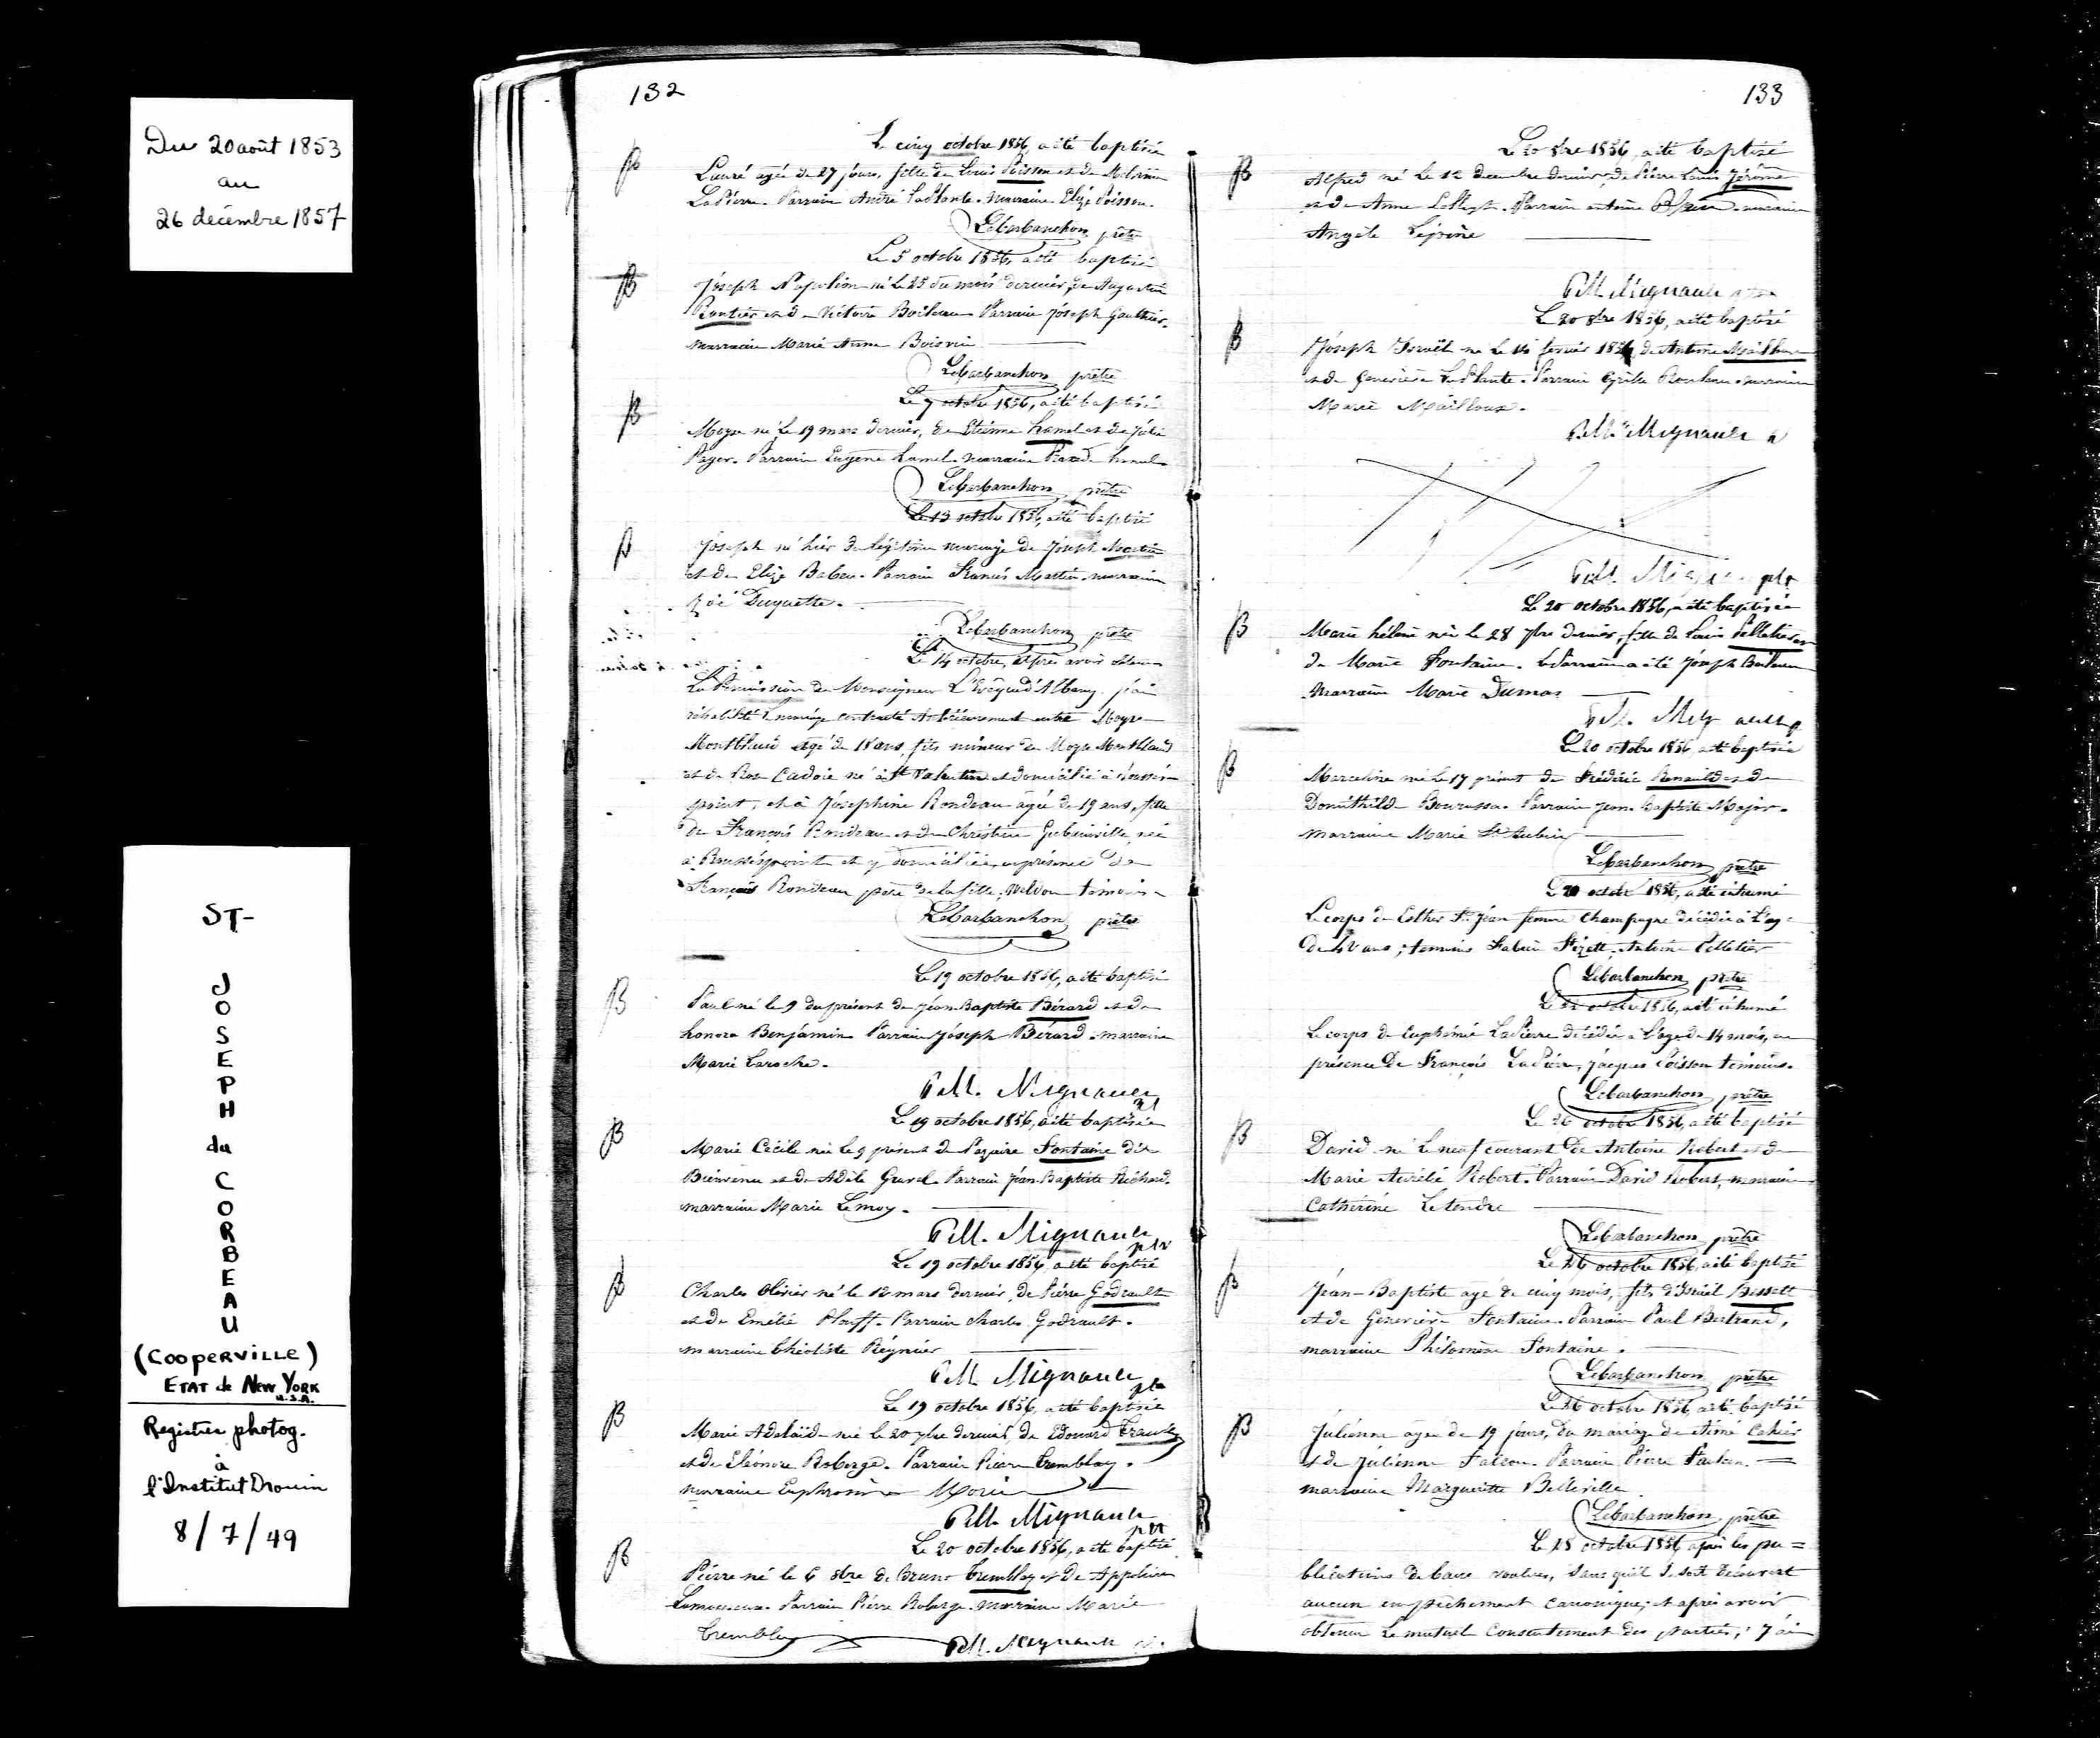 Du 20 août 1853
au
26 décembre 1857
ST-
JOSEPH
du
CORBEAU
(COOPERVILLE)
ETAT de NEW YORK
U.S.A.
Registres photog.
à
l'Institut Drouin
8/7/49
132
Le cinq octobre 1856, a été baptisée
B
agée de 27 jours, fille de Louis Poisson et de
LaPierre. Parrain André LaPlante. marraine Elize Poisson.
Lebarbanchon prêtre
Le 5 octobre 1856, a été baptisé
B
Joseph Napoléon né le 25 du mois dernier, de Augustin
et de Victoire Boileau Parrain Joseph Gauthier.
marraine Marie Anne Boisvin
Lebarbanchon prêtre
Le 7 octobre 1856, a été baptisé
B
Moyse né le 19 mars dernier, de Etienne hamel et de Julie
Parrain Eugene hamel. marraine hamel
Lebarbanchon prêtre
Le 13 octobre 1856, a été baptisé
B
Joseph né hier de légitime mariage de Joseph Martin
et de Elize Babeu. Parrain Francis Martin. marraine
Zoé Duquette.
Lebarbanchon prêtre
Le 14 octobre, après avoir obtenu
La Permission de Monseigneur L'évêque d'Albany j'ai
réhabilité le mariage contracté antérieurement entre Moyse
agé de 18 ans, fils mineur de Moyse
et de Rose Cadoie né à St Valentin et domicilié à
point, et à Joséphine Rondeau agée de 19 ans, fille
de François Rondeau et de Christine née
à Roussespoint et y domiciliée, en présence de
François Rondeau père de la fille, témoins
Lebarbanchon prêtre
Le 19 octobre 1856, a été baptisé
B
Paul né le 9 du présent de Jean Baptiste Bérard et de
honora Benjamin Parrain Joseph Bérard. marraine
Marie Laroche.
P. M. Mignault
ptr
Le 19 octobre 1856, a été baptisée
B
Marie Cécile née le 9 présent de Nazaire Fontaine dit
Bienvenu et de Adèle Gravel. Parrain Jean Baptiste Richard.
marraine Marie Lemoy.
P. M. Mignault
ptr
Le 19 octobre 1856, a été baptisé
B
Charles Olivier né le 12 mars dernier, de Pierre Godrault
et de Emélie Plouff. Parrain Charles Godrault.
marraine Théotiste Régnier
P. M. Mignault
ptr
Le 19 octobre 1856, a été baptisée
B
Marie Adelaïde née le 20 7bre dernier, de Edouard
et de Eléonore Roberge. Parrain Pierre Tremblay.
marraine Euphrosine Morin
P. M. Mignault
ptr
Le 20 octobre 1856, a été baptisé
B
Pierre né le 6 8bre de Bruno Tremblay et de Appoline
Lamoureux. Parrain Pierre Roberge. marraine Marie
Tremblay
P. M. Mignault
133
Le 20 8bre 1856, a été baptisé
B
Alfred né le 12 decembre dernier, de Pierre Louis Jérôme
et de Anne Parrain antoine marraine
Angèle Lépine
P. M. Mignault
Le 20 8bre 1856, a été baptisé
B
Joseph Israël né le 14 fevrier 1856 de Antoine Mailloux
et de Genevieve LaPlante. Parrain Cyrille marraine
Marie Mailloux.
P. M. Mignault
P. M. ptr
Le 20 octobre 1856, a été baptisée
B
Marie hélène née le 28 7bre dernier, fille de Louis Pelletier et
de Marie Fontaine. Le Parrain a été Joseph
marraine Marie Dumas
P. M. Mignault
Le 20 octobre 1856 a été baptisée
B
Marceline née le 17 présent de Frédéric Renauld et de
Domithilde Bourassa. Parrain Jean Baptiste Major.
marraine Marie St Aubin
Lebarbanchon prêtre
Le 20 octobre 1856, a été inhumé
Le corps de Esther St. Jean femme Champagne décédée à l'age
de ans; temoins Fabien Antoine Pelletier
Lebarbanchon prêtre
Le octobre 1856, a été inhumé
Le corps de Euphémie LaPierre décédée à l'age de 14 mois, en
présence de François LaPierre, Jacques Poisson témoins.
Lebarbanchon prêtre
Le 26 octobre 1856, a été baptisé
B
David né le neuf courant de Antoine Robert et de
Marie Aurélie Robert. Parrain David Robert, marraine
Cathérine Letendre
Lebarbanchon prêtre
Le 26 octobre 1856, a été baptisé
B
Jean-Baptiste agé de cinq mois, fils d'Israël Bissett
et de Genevieve Fontaine. Parrain Paul Bertrand,
marraine Philomène Fontaine.
Lebarbanchon prêtre
Le 26 octobre 1856, a été baptisé
B
Julienne agée de 19 jours, du mariage de Aimé Cahier
et de Julienne Parrain Pierre
marraine Marguerite Belleville
Lebarbanchon prêtre
Le 28 octobre 1856 après les pu=
blications de bans voulues, sans qu'il se soit découvert
aucun empêchement canonique; et après avoir
obtenu le mutuel consentement des parties; j'ai